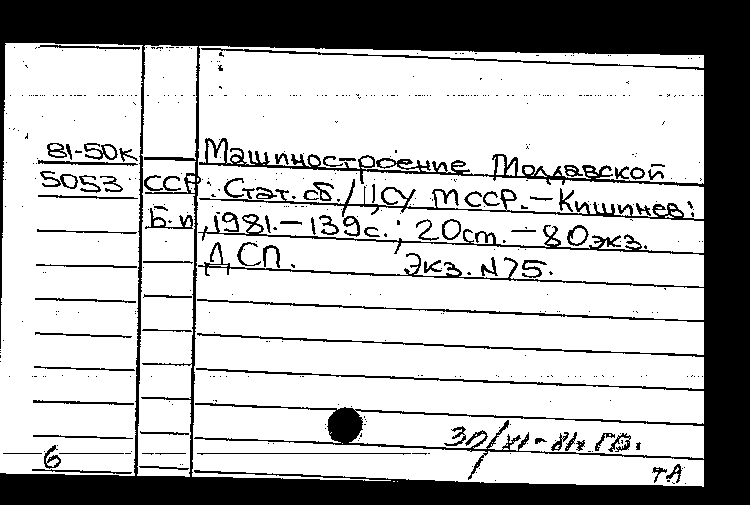 81-50к Машиностроение Молдавской
5053 ССР: Стат. сб. / ЦСУ МССР. – Кишинев:
Б. и, 1981. – 139 с.; 20 см. – 80 экз.
ДСП. Экз. N 75.
30/XI-81г. ГВ.
6
тА